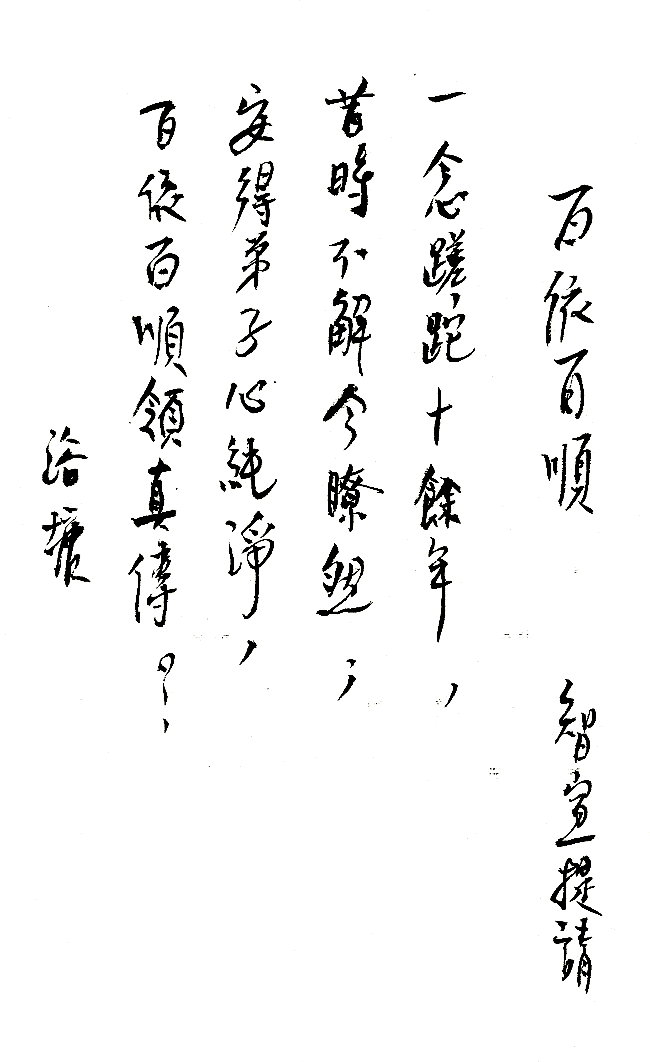 百依百順 智宣提請
一念蹉跎十餘年，
昔時不解今瞭然；
安得弟子心純淨，
百依百順領真傳？
浴